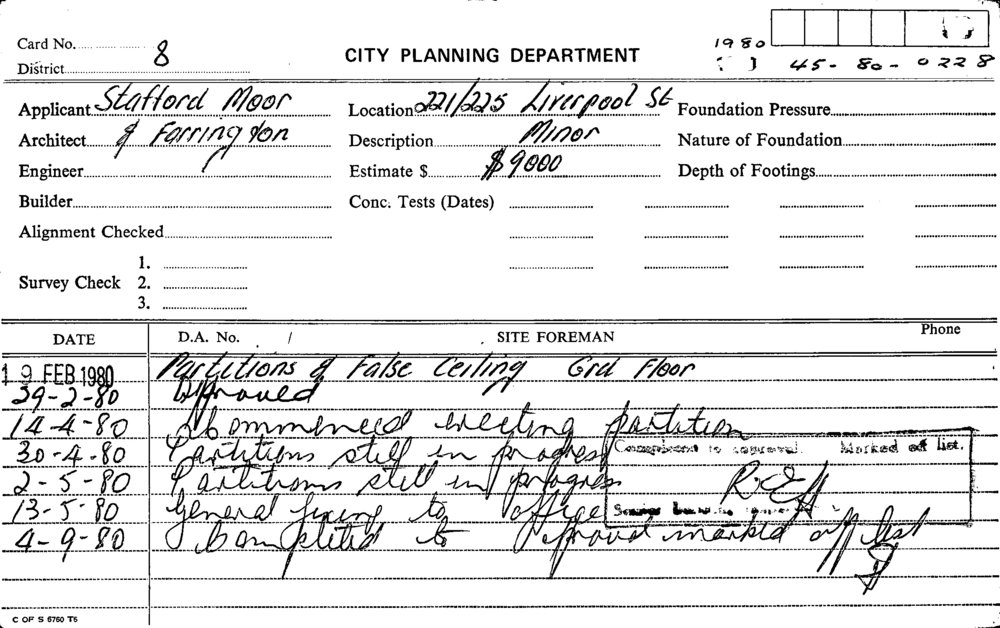 Card No. 8
District
CITY PLANNING DEPARTMENT
1980
45-80-0228
Applicant Stafford Moor
Location 221/225 Liverpool St
Foundation Pressure
Architect & Farrington
Description Minor
Nature of Foundation
Engineer
Estimate $ $9000
Depth of Footings
Builder
Conc. Tests (Dates)
Alignment Checked
Survey Check 1.
2.
3.
DATE D.A. No. / SITE FOREMAN Phone
19 FEB 1980 Partitions & False Ceiling Grd Floor
29-2-80 Approved
14-4-80 Commenced erecting partition
30-4-80 Partitions still in progress
Completed to approval. Marked off list.
2-5-80 Partitions still in progress
13-5-80 General fixing to office
Senior
4-9-80 Completed to approval marked off list
C OF S 6760 T6